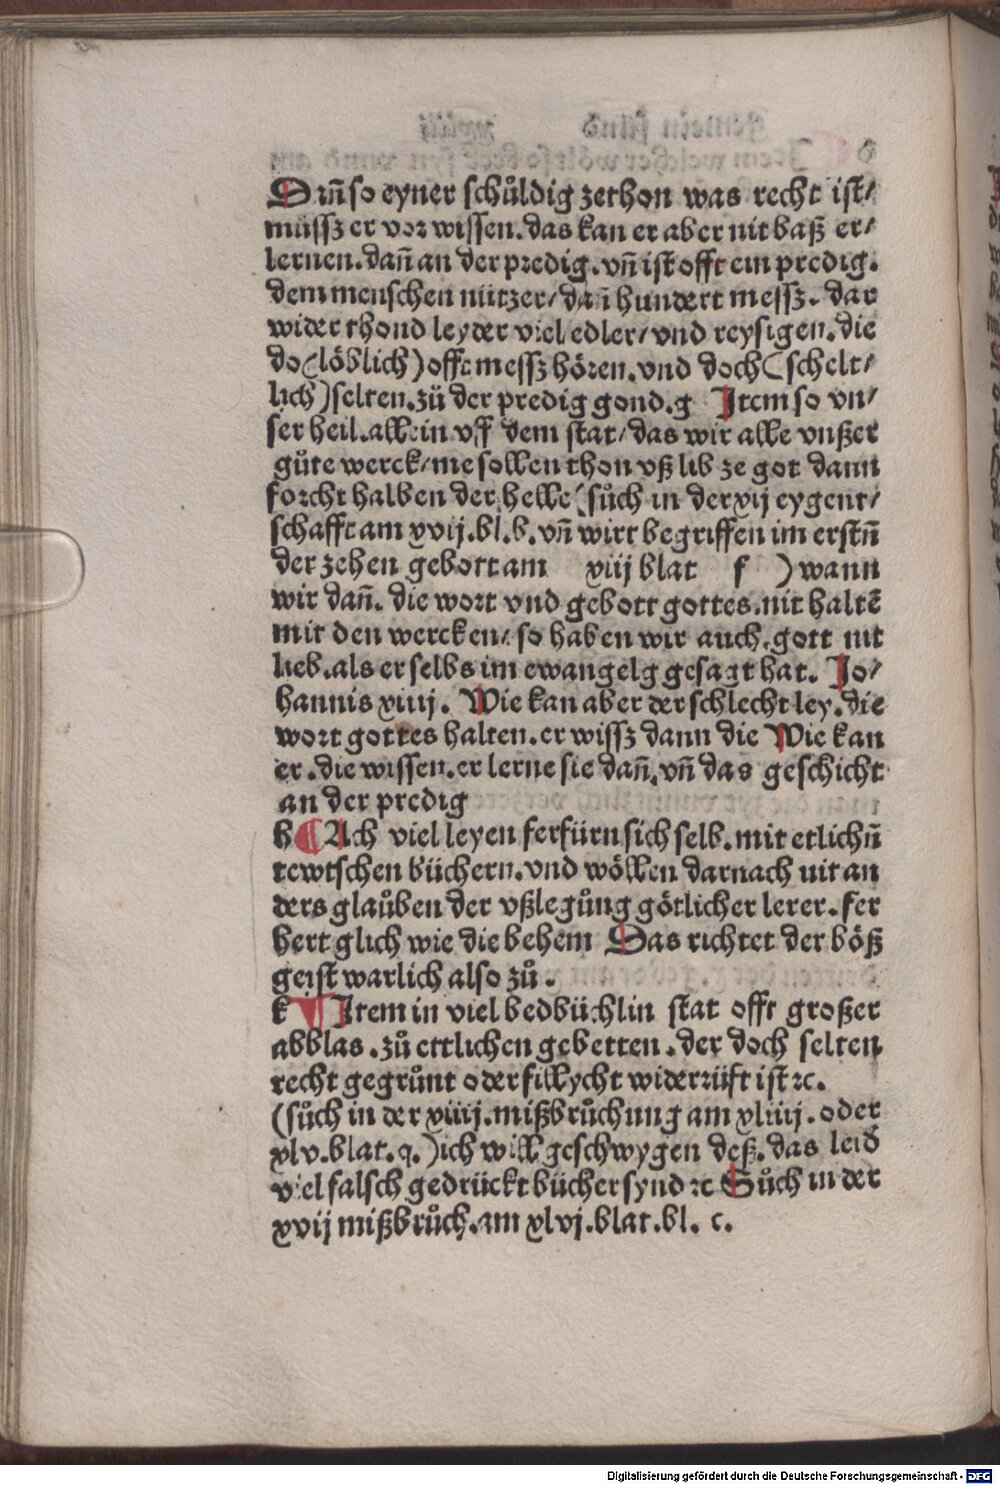 Dañ so eyner schůldig ze thon was recht ist/
müssz er vor wissen. das kan er aber nit baß er/
lernen. dañ an der predig. vñ ist offt ein predig.
dem menschen nützer/ dañ hundert messz. dar
wider thond leyder viel edler/ vnd reysigen. die
do (löblich) offt messz hören. vnd doch (schelt/
lich) selten. zü der predig gond. g Item so vn/
ser heil. allein vff dem stat/ das wir alle vnßer
gůte werck/ me sollen thon vß lib ze got dann
forcht halben der helle (sůch in der xij eygent/
schafft am xvij. bl. b. vñ wirt begriffen im erstñ
der zehen gebott am xiij blat f ) wann
wir dañ. die wort vnd gebott gottes. nit haltē
mit den wercken/ so haben wir auch. gott nit
lieb. als er selbs im ewangelg gesagt hat. Jo/
hannis xiiij. Wie kan aber der schlecht ley. die
wort gottes halten. er wissz dann die Wie kan
er. die wissen. er lerne sie dañ. vñ das geschicht
an der predig
h ¶ Ach viel leyen ferfürn sich selb. mit etlichñ
tewtschen büchern. vnd wöllen darnach nit an
ders glaůben der vßlegůng götlicher lerer. fer
hert glich wie die behem Das richtet der böß
geist warlich also zů.
k ¶ Item in viel bedbüchlin stat offt großer
abblas. zů ettlichen gebetten. der doch selten
recht gegrůnt oder fillycht widerrüft ist ꝛc.
(sůch in der xiiij. mißbrůchung am xliiij. oder
xlv. blat. q.) ich will geschwygen deß. das leid
viel falsch gedrückt bücher synd ꝛc Sůch in der
xvij mißbrůch. am xlvj. blat. bl. c.
Digitalisierung gefördert durch die Deutsche Forschungsgemeinschaft - DFG